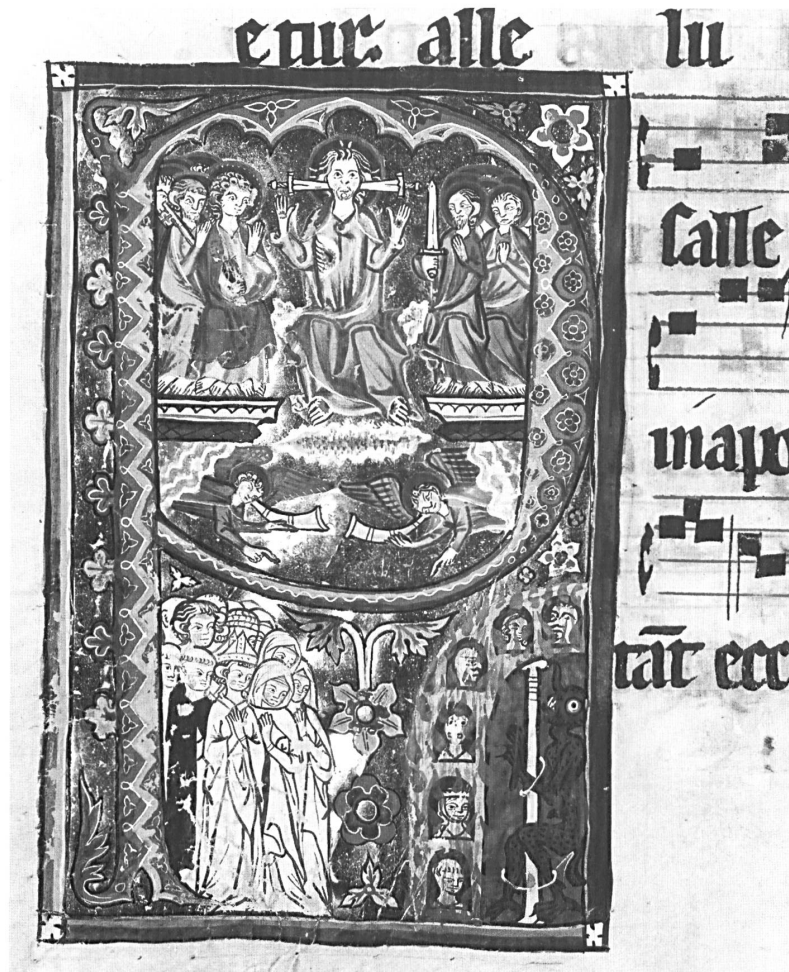 etur. alle lu
salle
in apo
tāt ecc